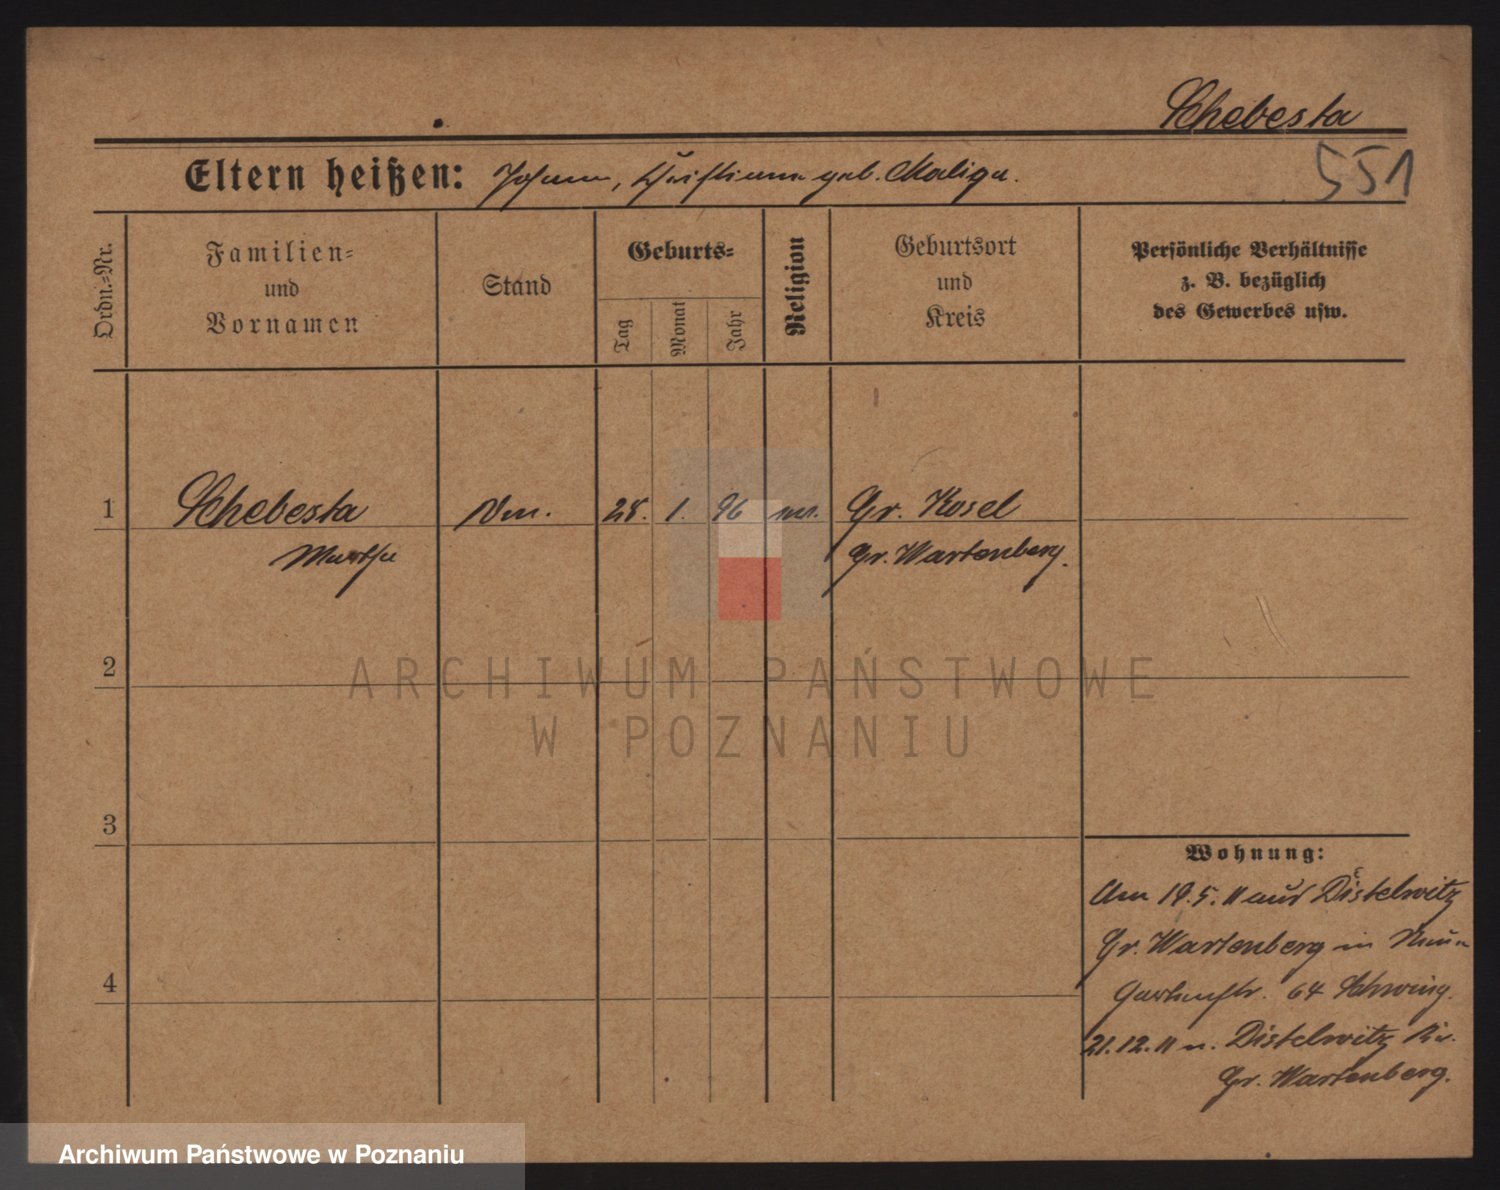 Schebesta
551
Eltern heißen: Johann, Christiane geb. Maliga.
Ordn.-Nr.
Familien-
und
Vornamen
Stand
Geburts-
Tag
Monat
Jahr
Religion
Geburtsort
und
Kreis
Persönliche Verhältnisse
z. B. bezüglich
des Gewerbes usw.
1 Schebesta 28. 1. 96 Gr. Kosel
Martha Gr. Wartenberg.
2
3
4
Wohnung:
Am 19. 5. 11 aus Distelwitz
Gr. Wartenberg in
Gartenstr. 64
21. 12. 11 n. Distelwitz Kr.
Gr. Wartenberg.
ARCHIWUM PAŃSTWOWE
W POZNANIU
Archiwum Państwowe w Poznaniu